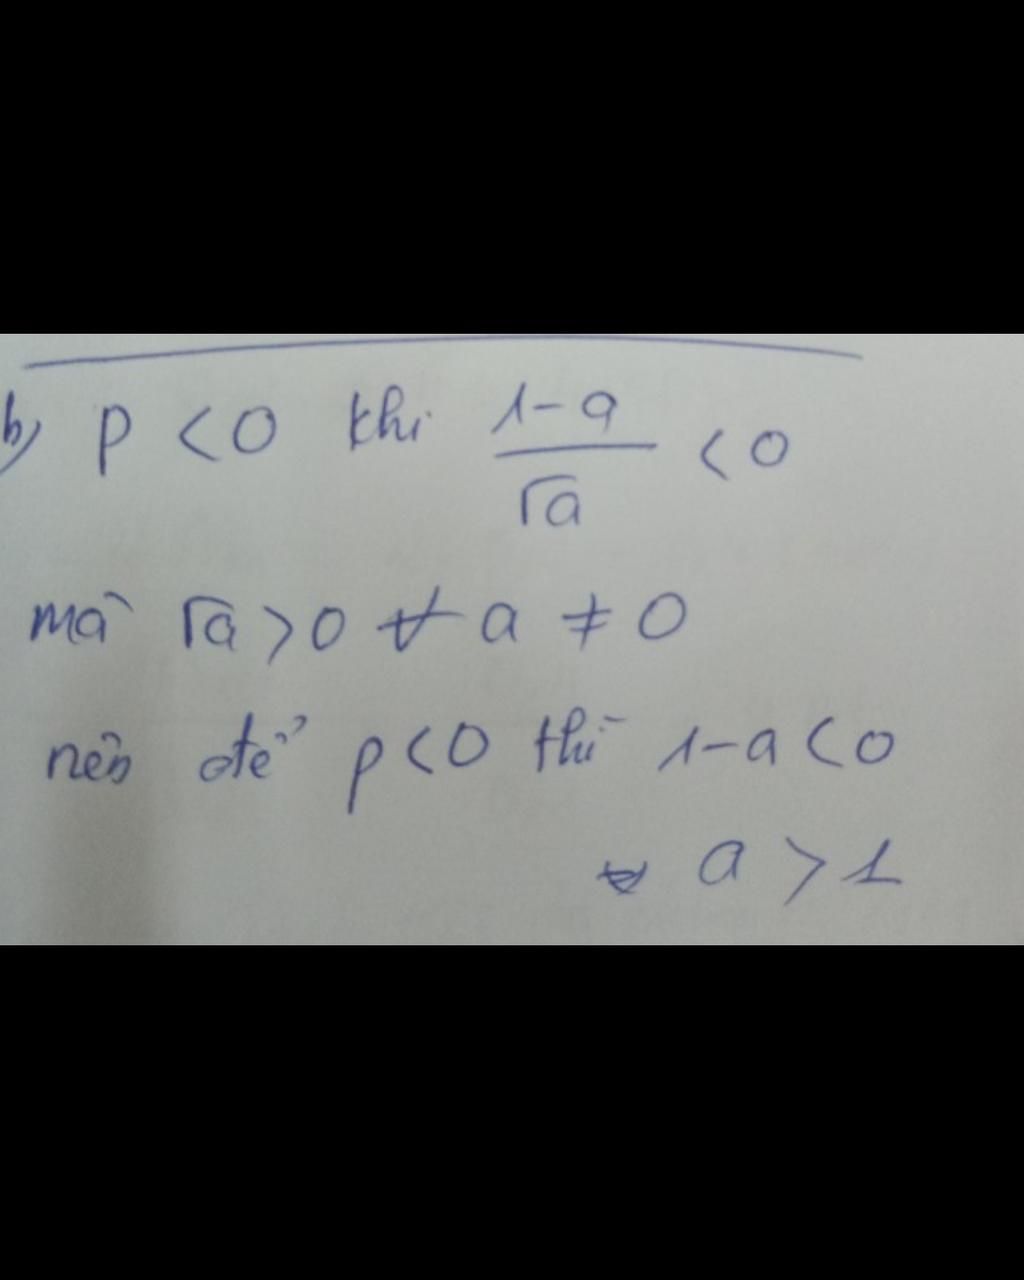 b) P < 0 khi (1-a)/√a < 0
mà √a > 0 ∀ a ≠ 0
nên để P < 0 thì 1-a < 0
a > 1